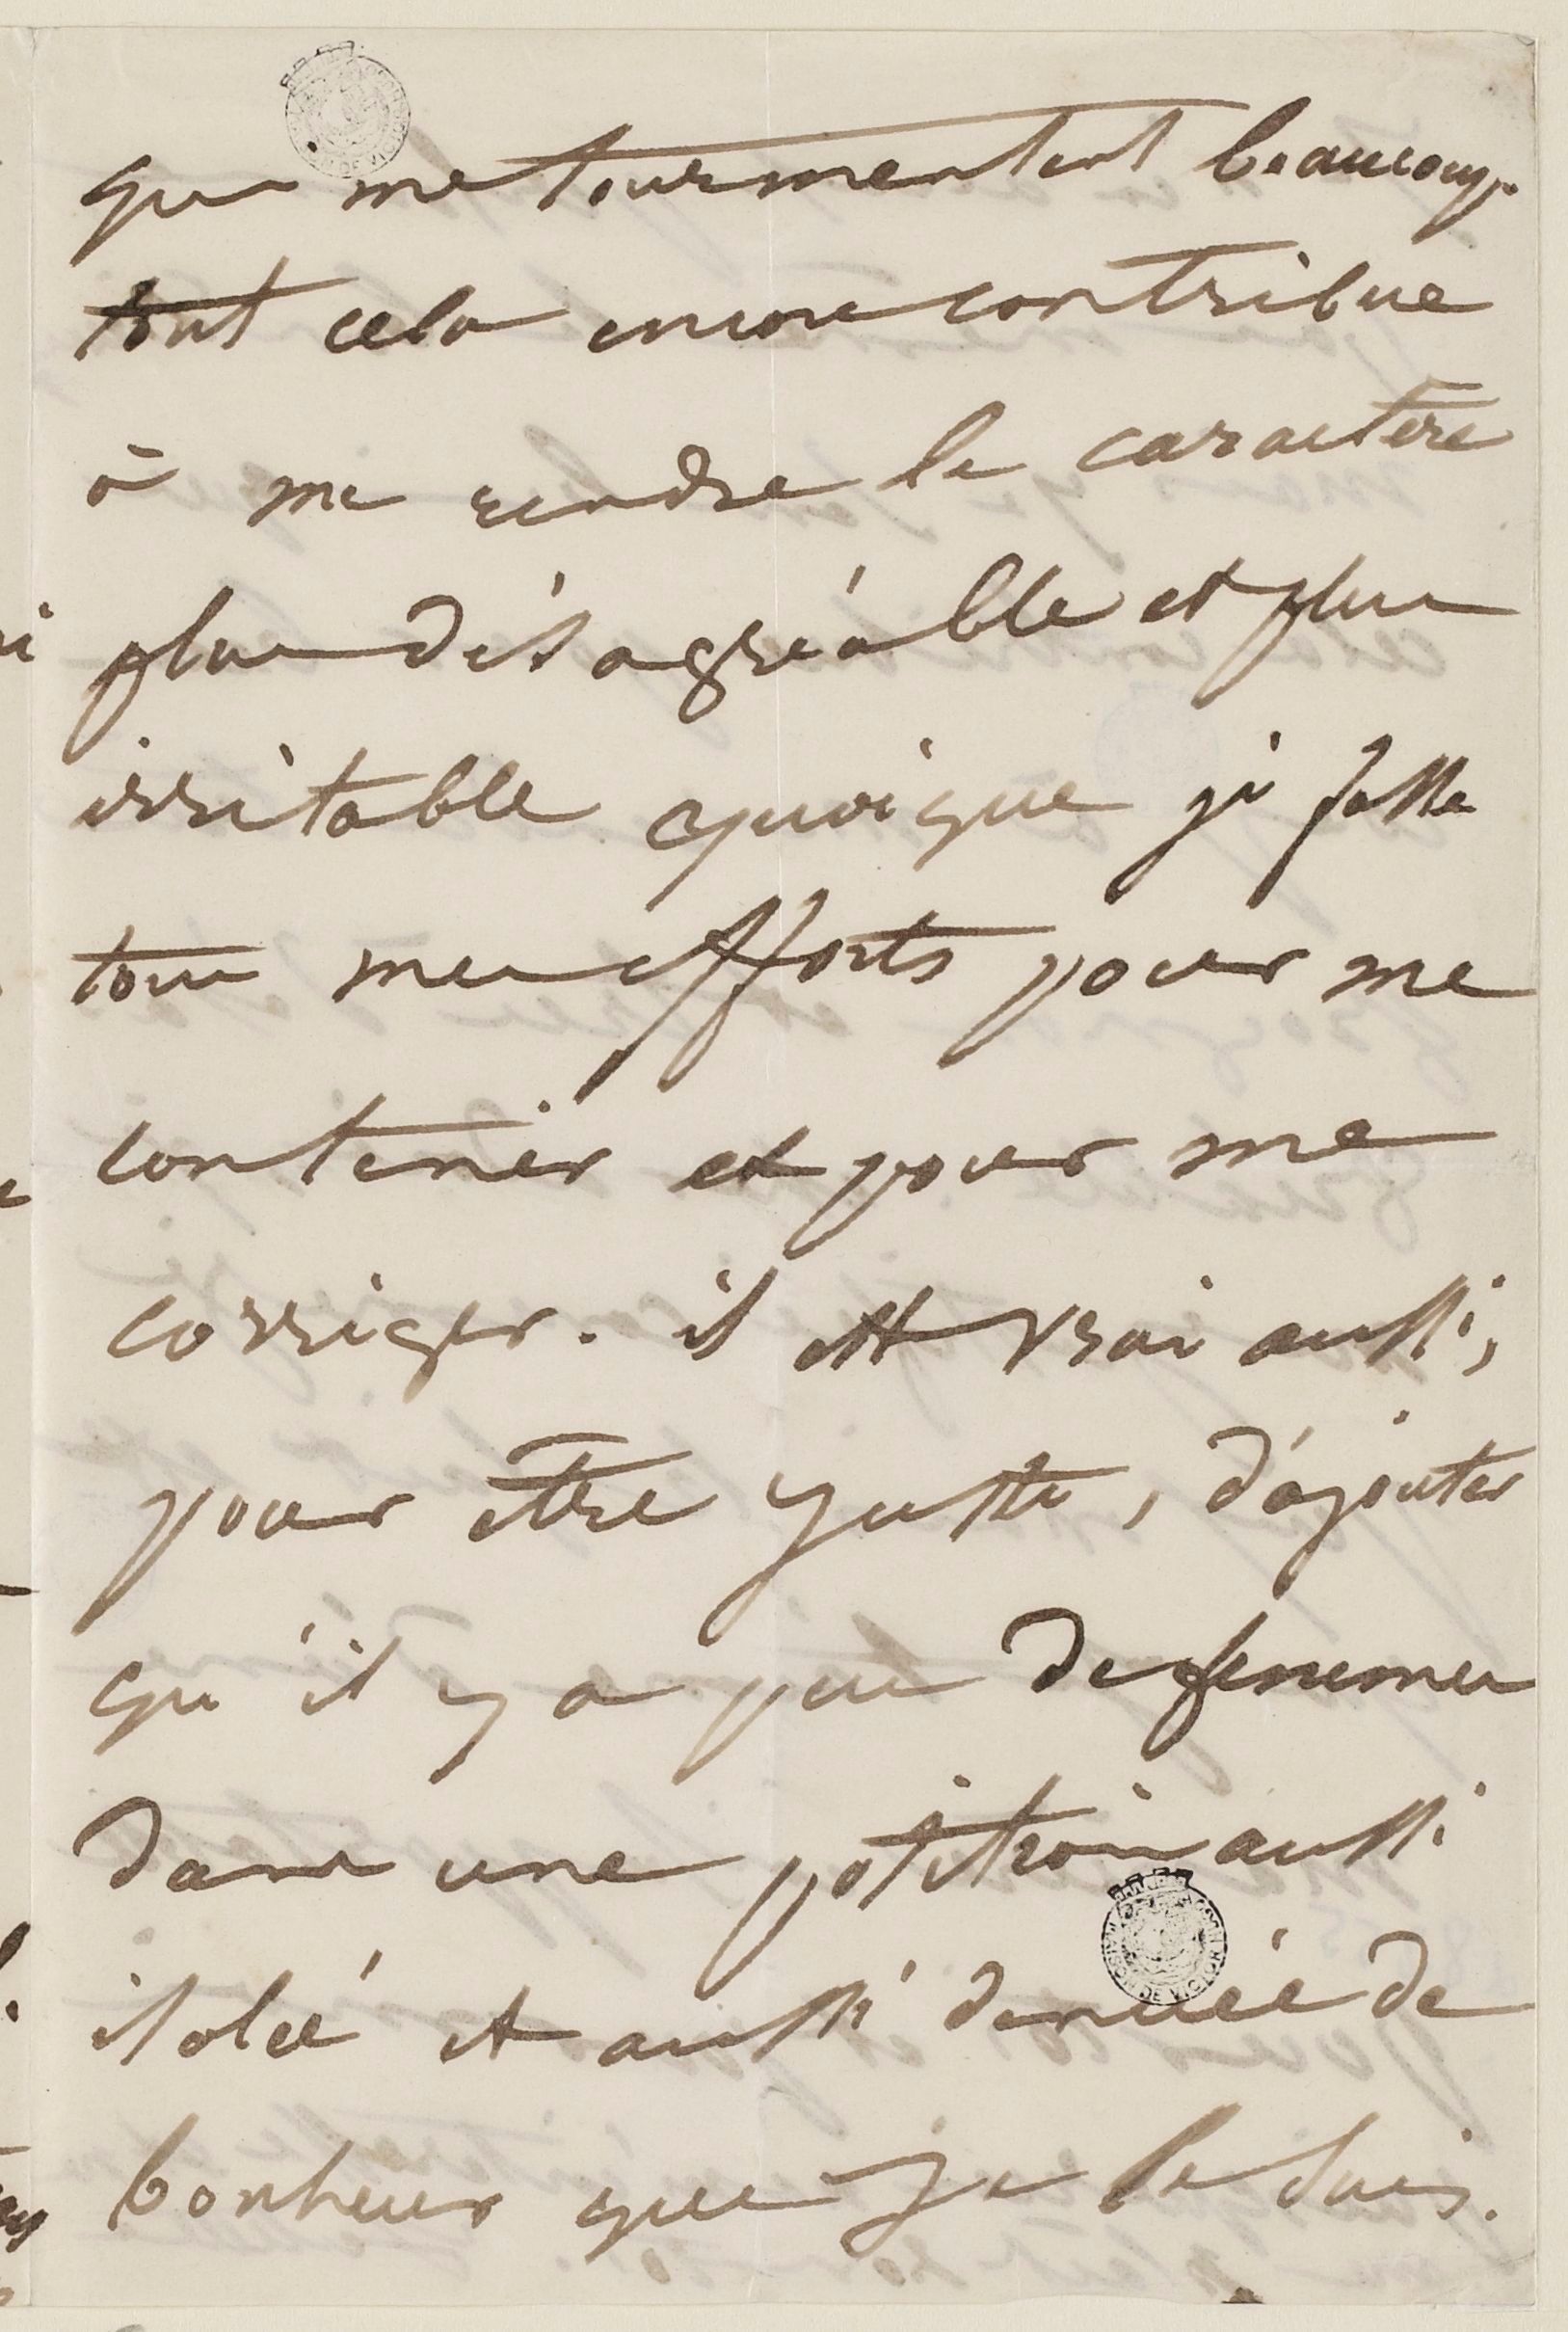 qui me tourmentent beaucoup.
tout cela encore contribue
à me rendre le caractère
plus désagréable et plus
irritable quoique je fasse
tous mes efforts pour me
contenir et pour me
corriger. il est vrai aussi,
pour être juste, d'ajouter
qu'il y a peu de femmes
dans une position aussi
isolée et aussi denuée de
bonheur que je le suis.